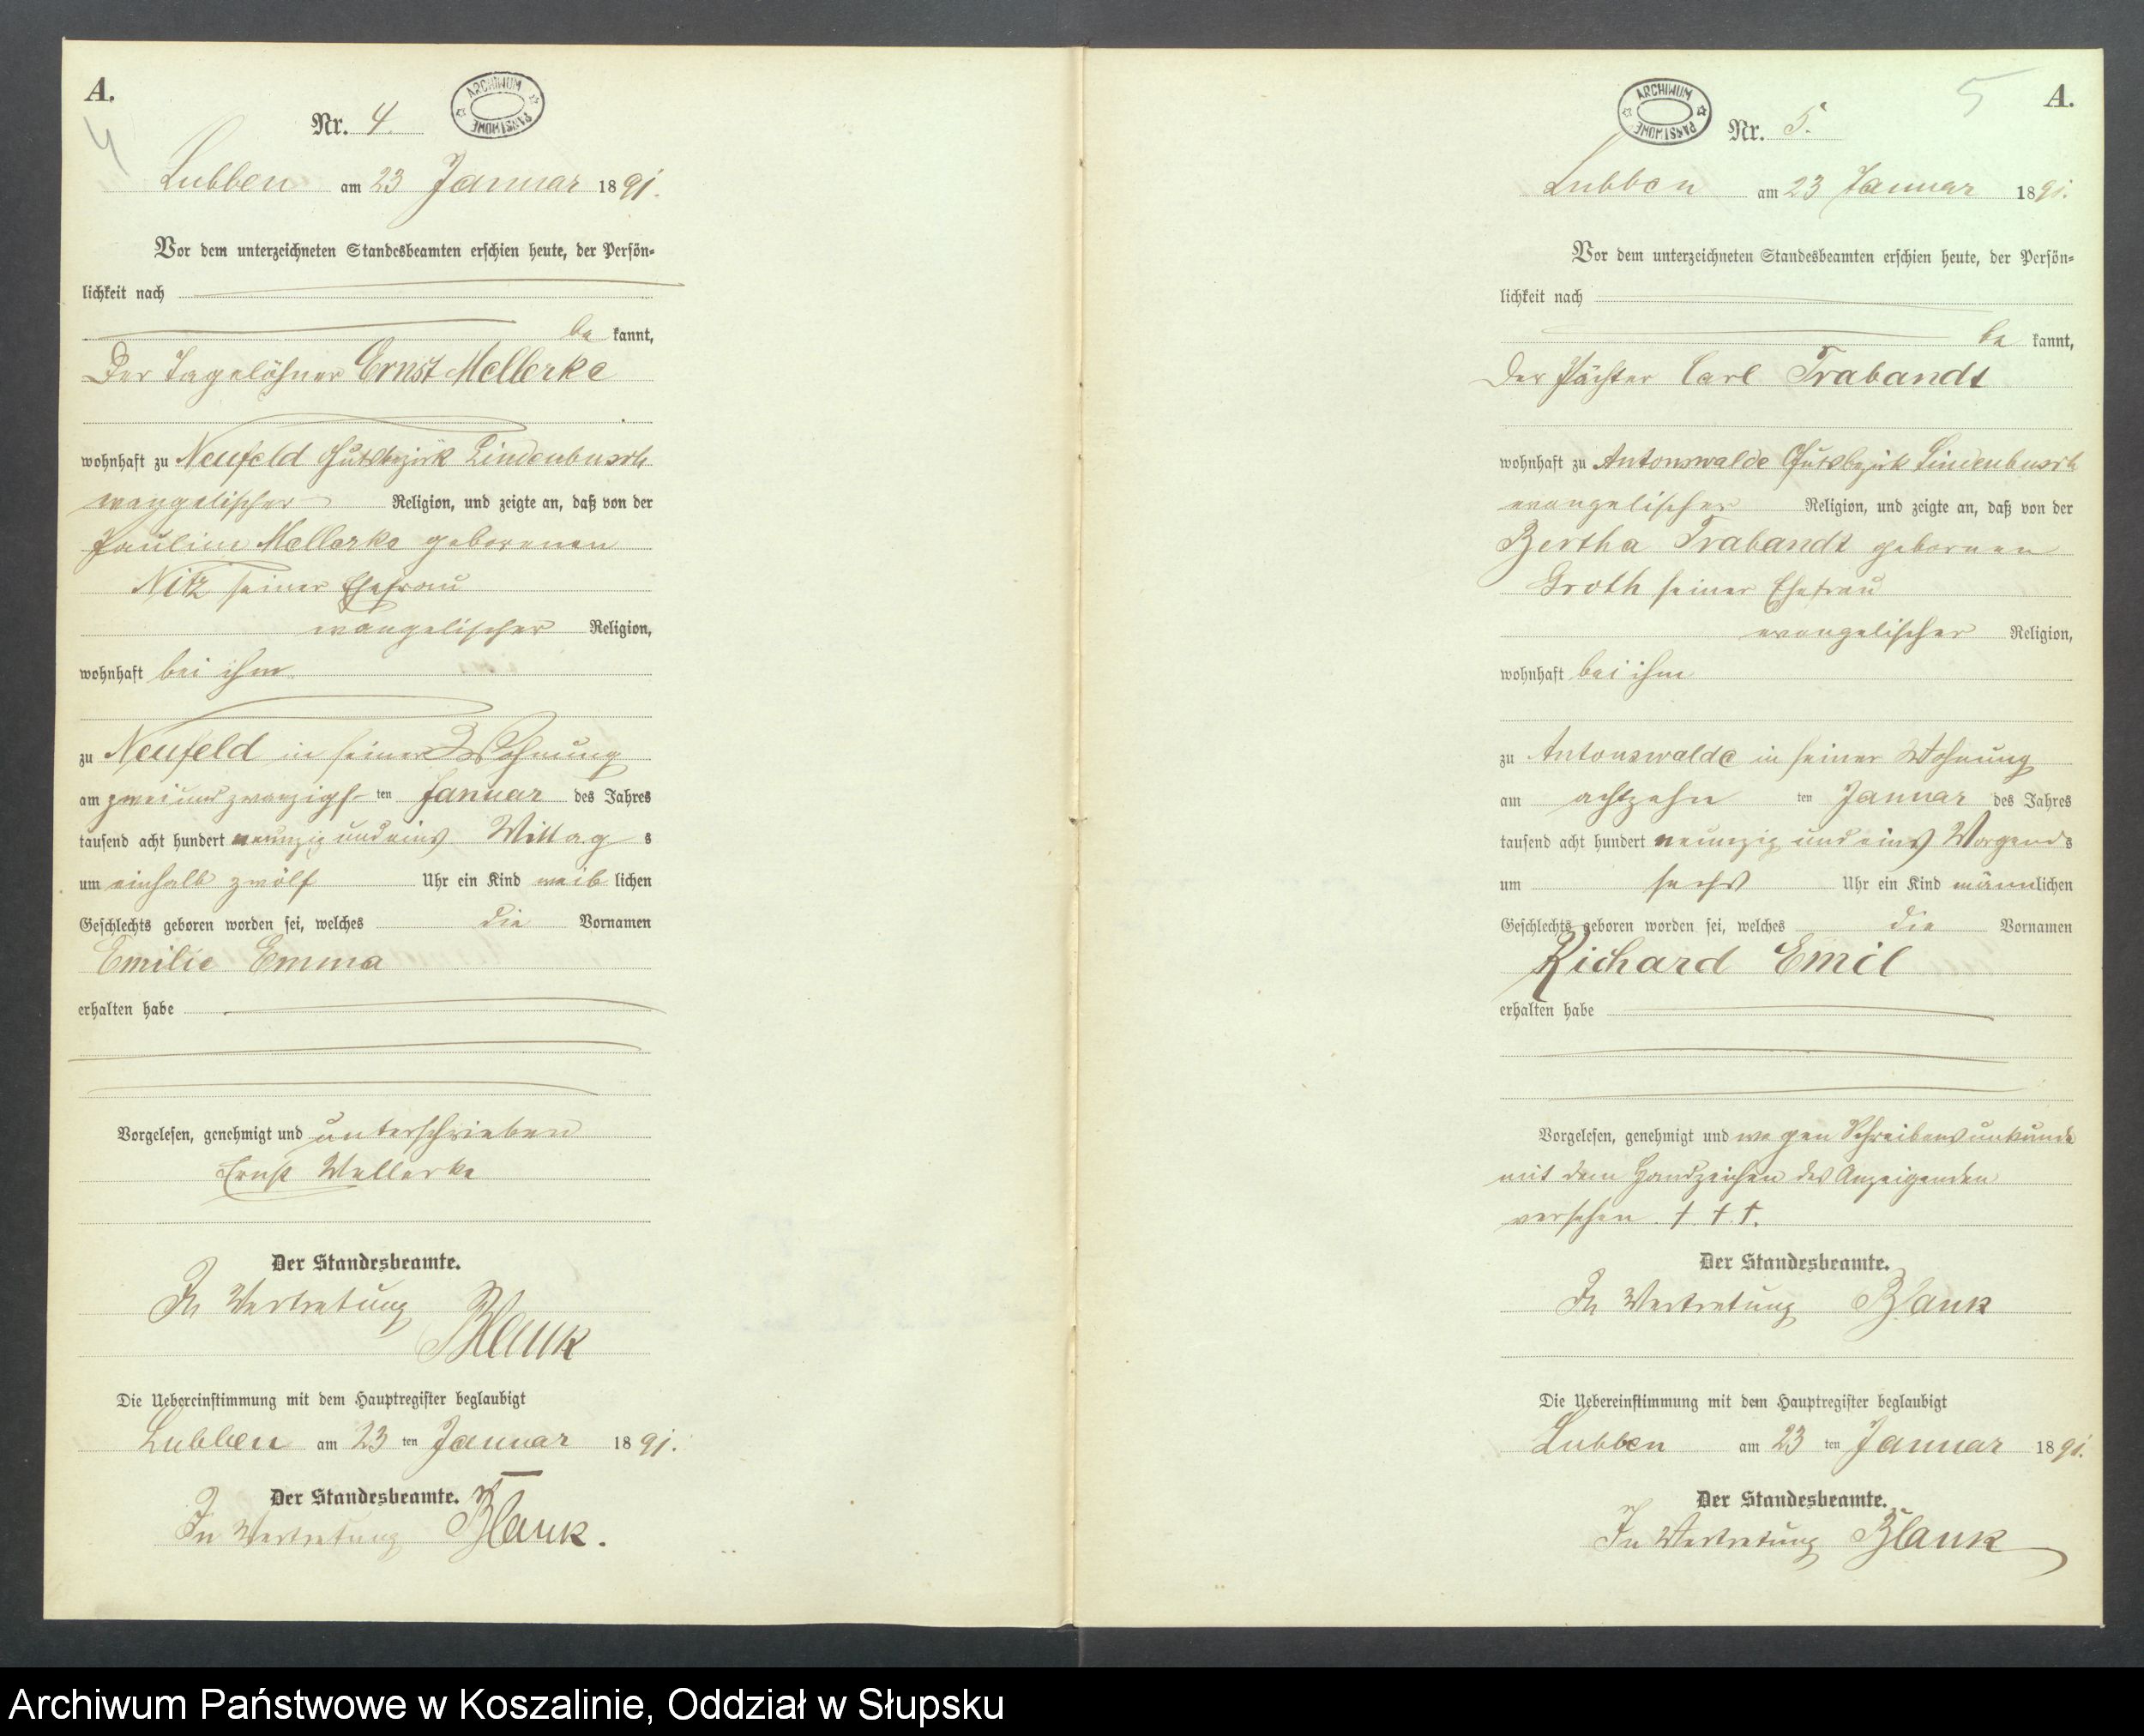 A.
4
Nr. 4.
ARCHIWUM PAŃSTWOWE
Lubben am 23 Januar 1891.
Vor dem unterzeichneten Standesbeamten erschien heute, der Persön-
lichkeit nach
be kannt,
Der Tagelöhner Ernst Mellerke
wohnhaft zu Neufeld Gutsbezirk Lindenbusch
evangelischer Religion, und zeigte an, daß von der
Pauline Mellerke geborenen
Nitz seiner Ehefrau
evangelischer Religion,
wohnhaft bei ihm
zu Neufeld in seiner Wohnung
am zwei und zwanzigs- ten Januar des Jahres
tausend acht hundert neunzig und eins Mittag s
um einhalb zwölf Uhr ein Kind weib lichen
Geschlechts geboren worden sei, welches die Vornamen
Emilie Emma
erhalten habe
Vorgelesen, genehmigt und unterschrieben
Ernst Mellerke
Der Standesbeamte.
In Vertretung
Blank
Die Uebereinstimmung mit dem Hauptregister beglaubigt
Lubben am 23 ten Januar 1891.
Der Standesbeamte.
In Vertretung Blank.
5
A.
ARCHIWUM PAŃSTWOWE
Nr. 5.
Lubben am 23 Januar 1891.
Vor dem unterzeichneten Standesbeamten erschien heute, der Persön-
lichkeit nach
be kannt,
Der Pächter Carl Trabandt
wohnhaft zu Antonswalde Gutsbezirk Lindenbusch
evangelischer Religion, und zeigte an, daß von der
Bertha Trabandt gebornen
Groth seiner Ehefrau
evangelischer Religion,
wohnhaft bei ihm
zu Antonswalde in seiner Wohnung
am achtzehn ten Januar des Jahres
tausend acht hundert neunzig und eins Morgens
um sechs Uhr ein Kind männlichen
Geschlechts geboren worden sei, welches die Vornamen
Richard Emil
erhalten habe
Vorgelesen, genehmigt und wegen Schreibensunkunde
mit dem Handzeichen des Anzeigenden
versehen. † † †.
Der Standesbeamte.
In Vertretung Blank
Die Uebereinstimmung mit dem Hauptregister beglaubigt
Lubben am 23 ten Januar 1891.
Der Standesbeamte.
In Vertretung Blank
Archiwum Państwowe w Koszalinie, Oddział w Słupsku